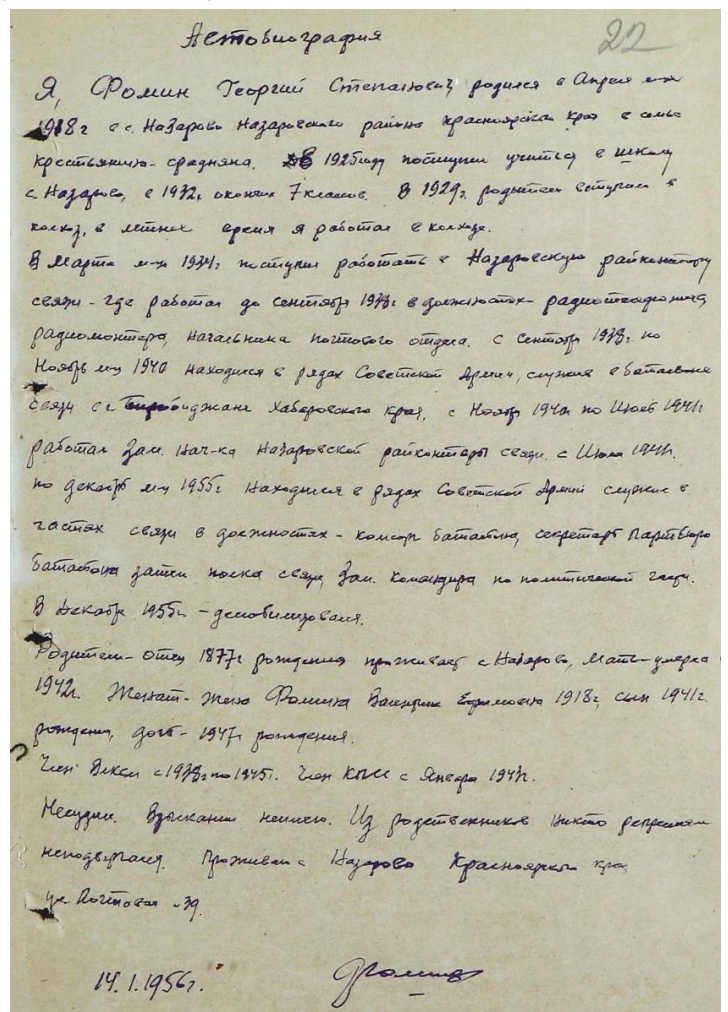 Автобиография
22
Я, Фомин Георгий Степанович родился в Апреле м-це
1918г в с. Назарово Назаровского района Красноярского края в семье
крестьянина-средняка. В 1925 году поступил учиться в школу
с. Назарово, в 1932г. окончил 7 классов. В 1929г. родители вступили в
колхоз, в летнее время я работал в колхозе.
В Марте м-це 1934г. поступил работать в Назаровскую райконтору
связи - где работал до сентября 1938г в должностях-
радиомонтера, начальника почтового отдела. С сентября 1938г. по
Ноябрь м-ц 1940 находился в рядах Советской Армии, служил в батальоне
связи в г. Биробиджане Хабаровского края, с Ноября 1940г по Июль 1941г
работал Зам. Нач-ка Назаровской райконторы связи. С Июля 1941г.
по декабрь м-ц 1955г находился в рядах Советской Армии служил в
частях связи в должностях - комсорг батальона, секретарь Партбюро
батальона связи, Зам. Командира по политической части.
В Декабре 1955г. - демобилизовался.
Родители - отец 1877г рождения проживает с Назарово, мать - умерла в
1942г. Женат - жена Фомина Валентина Ефимовна 1918г, сын 1941г.
рождения, дочь - 1947г рождения.
Член ВЛКСМ с 1938г по 1945г. Член КПСС с Января 1943г.
Несудим. Взыскании неимею. Из родственников никто репрессии
неподвергался. Проживаю с Назарово Красноярского края
ул. Почтовая 39.
14.1.1956г.
Фомин